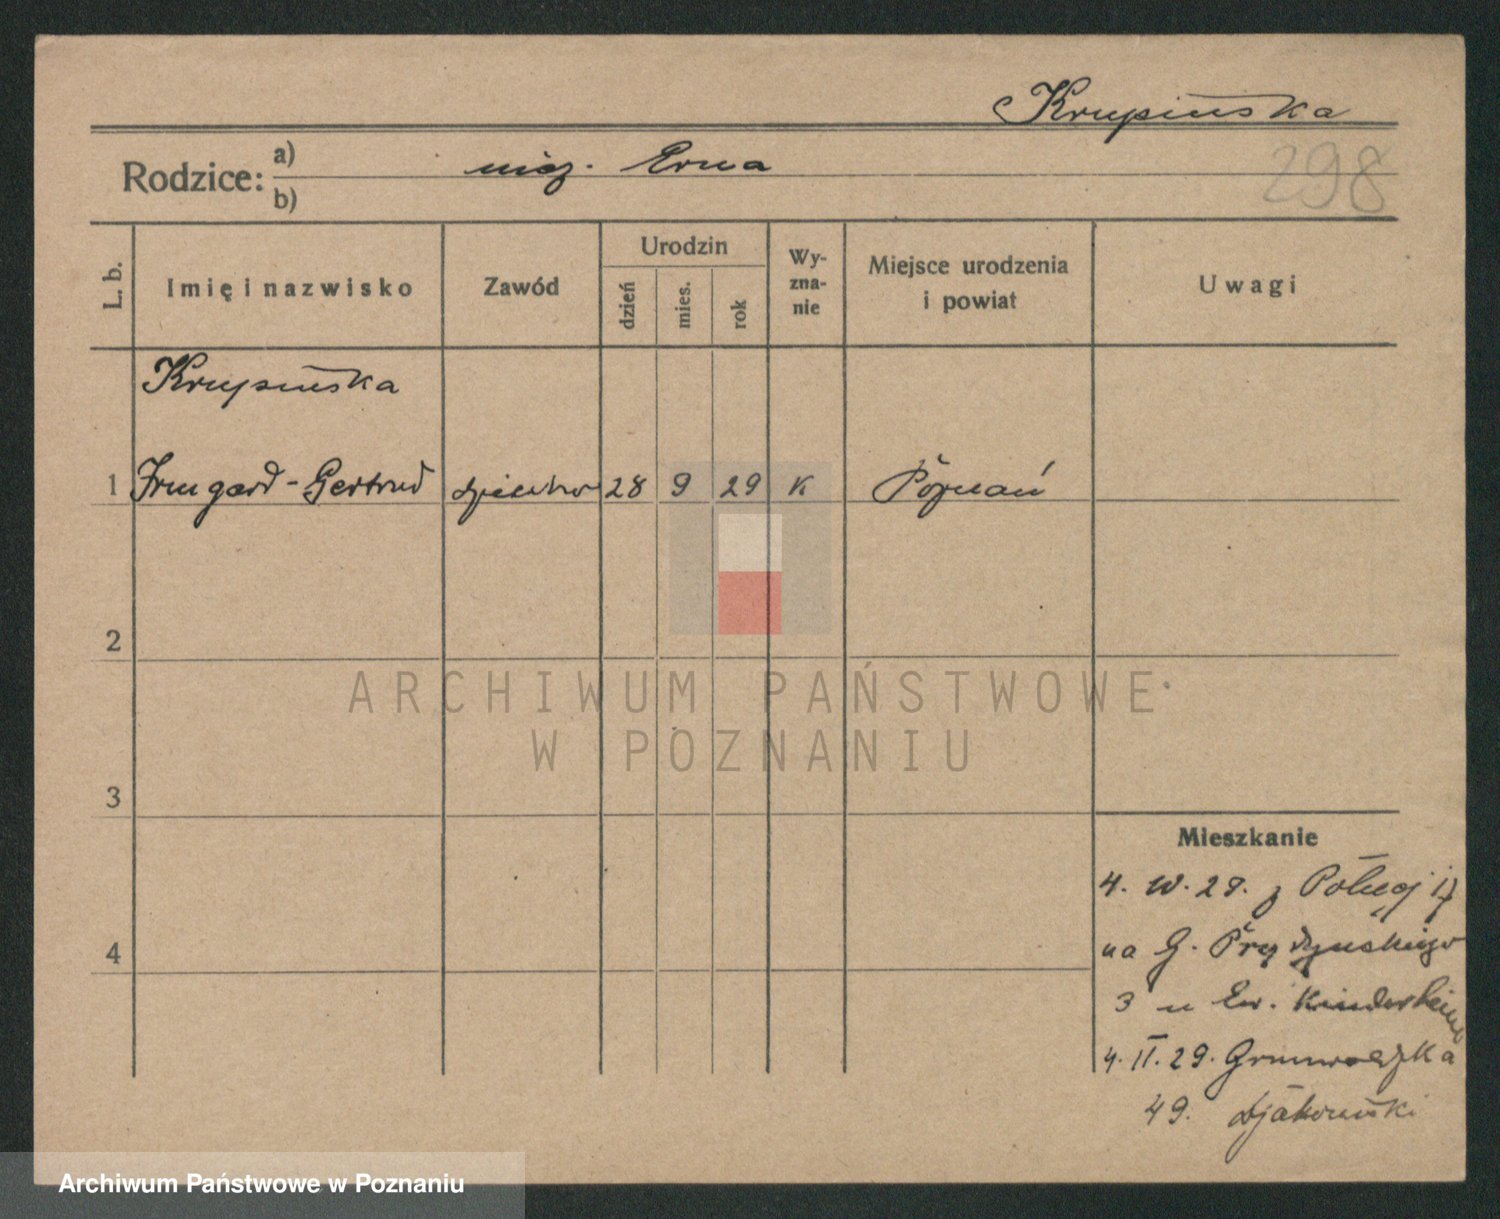 Krupińska
Rodzice: a) niez. Erna
b)
298
L. b.
Imię i nazwisko
Zawód
Urodzin
dzień
mies.
rok
Wy-
zna-
nie
Miejsce urodzenia
i powiat
Uwagi
Krupińska
1 Irmgard-Gertrud dziecko 28 9 29 K Poznań
2
3
4
ARCHIWUM PAŃSTWOWE
W POZNANIU
Mieszkanie
29. z Polnej 17
na G. Prądzyńskiego
3 u Ew. Kinderheim
4. II. 29. Grunwaldzka
49.
Archiwum Państwowe w Poznaniu